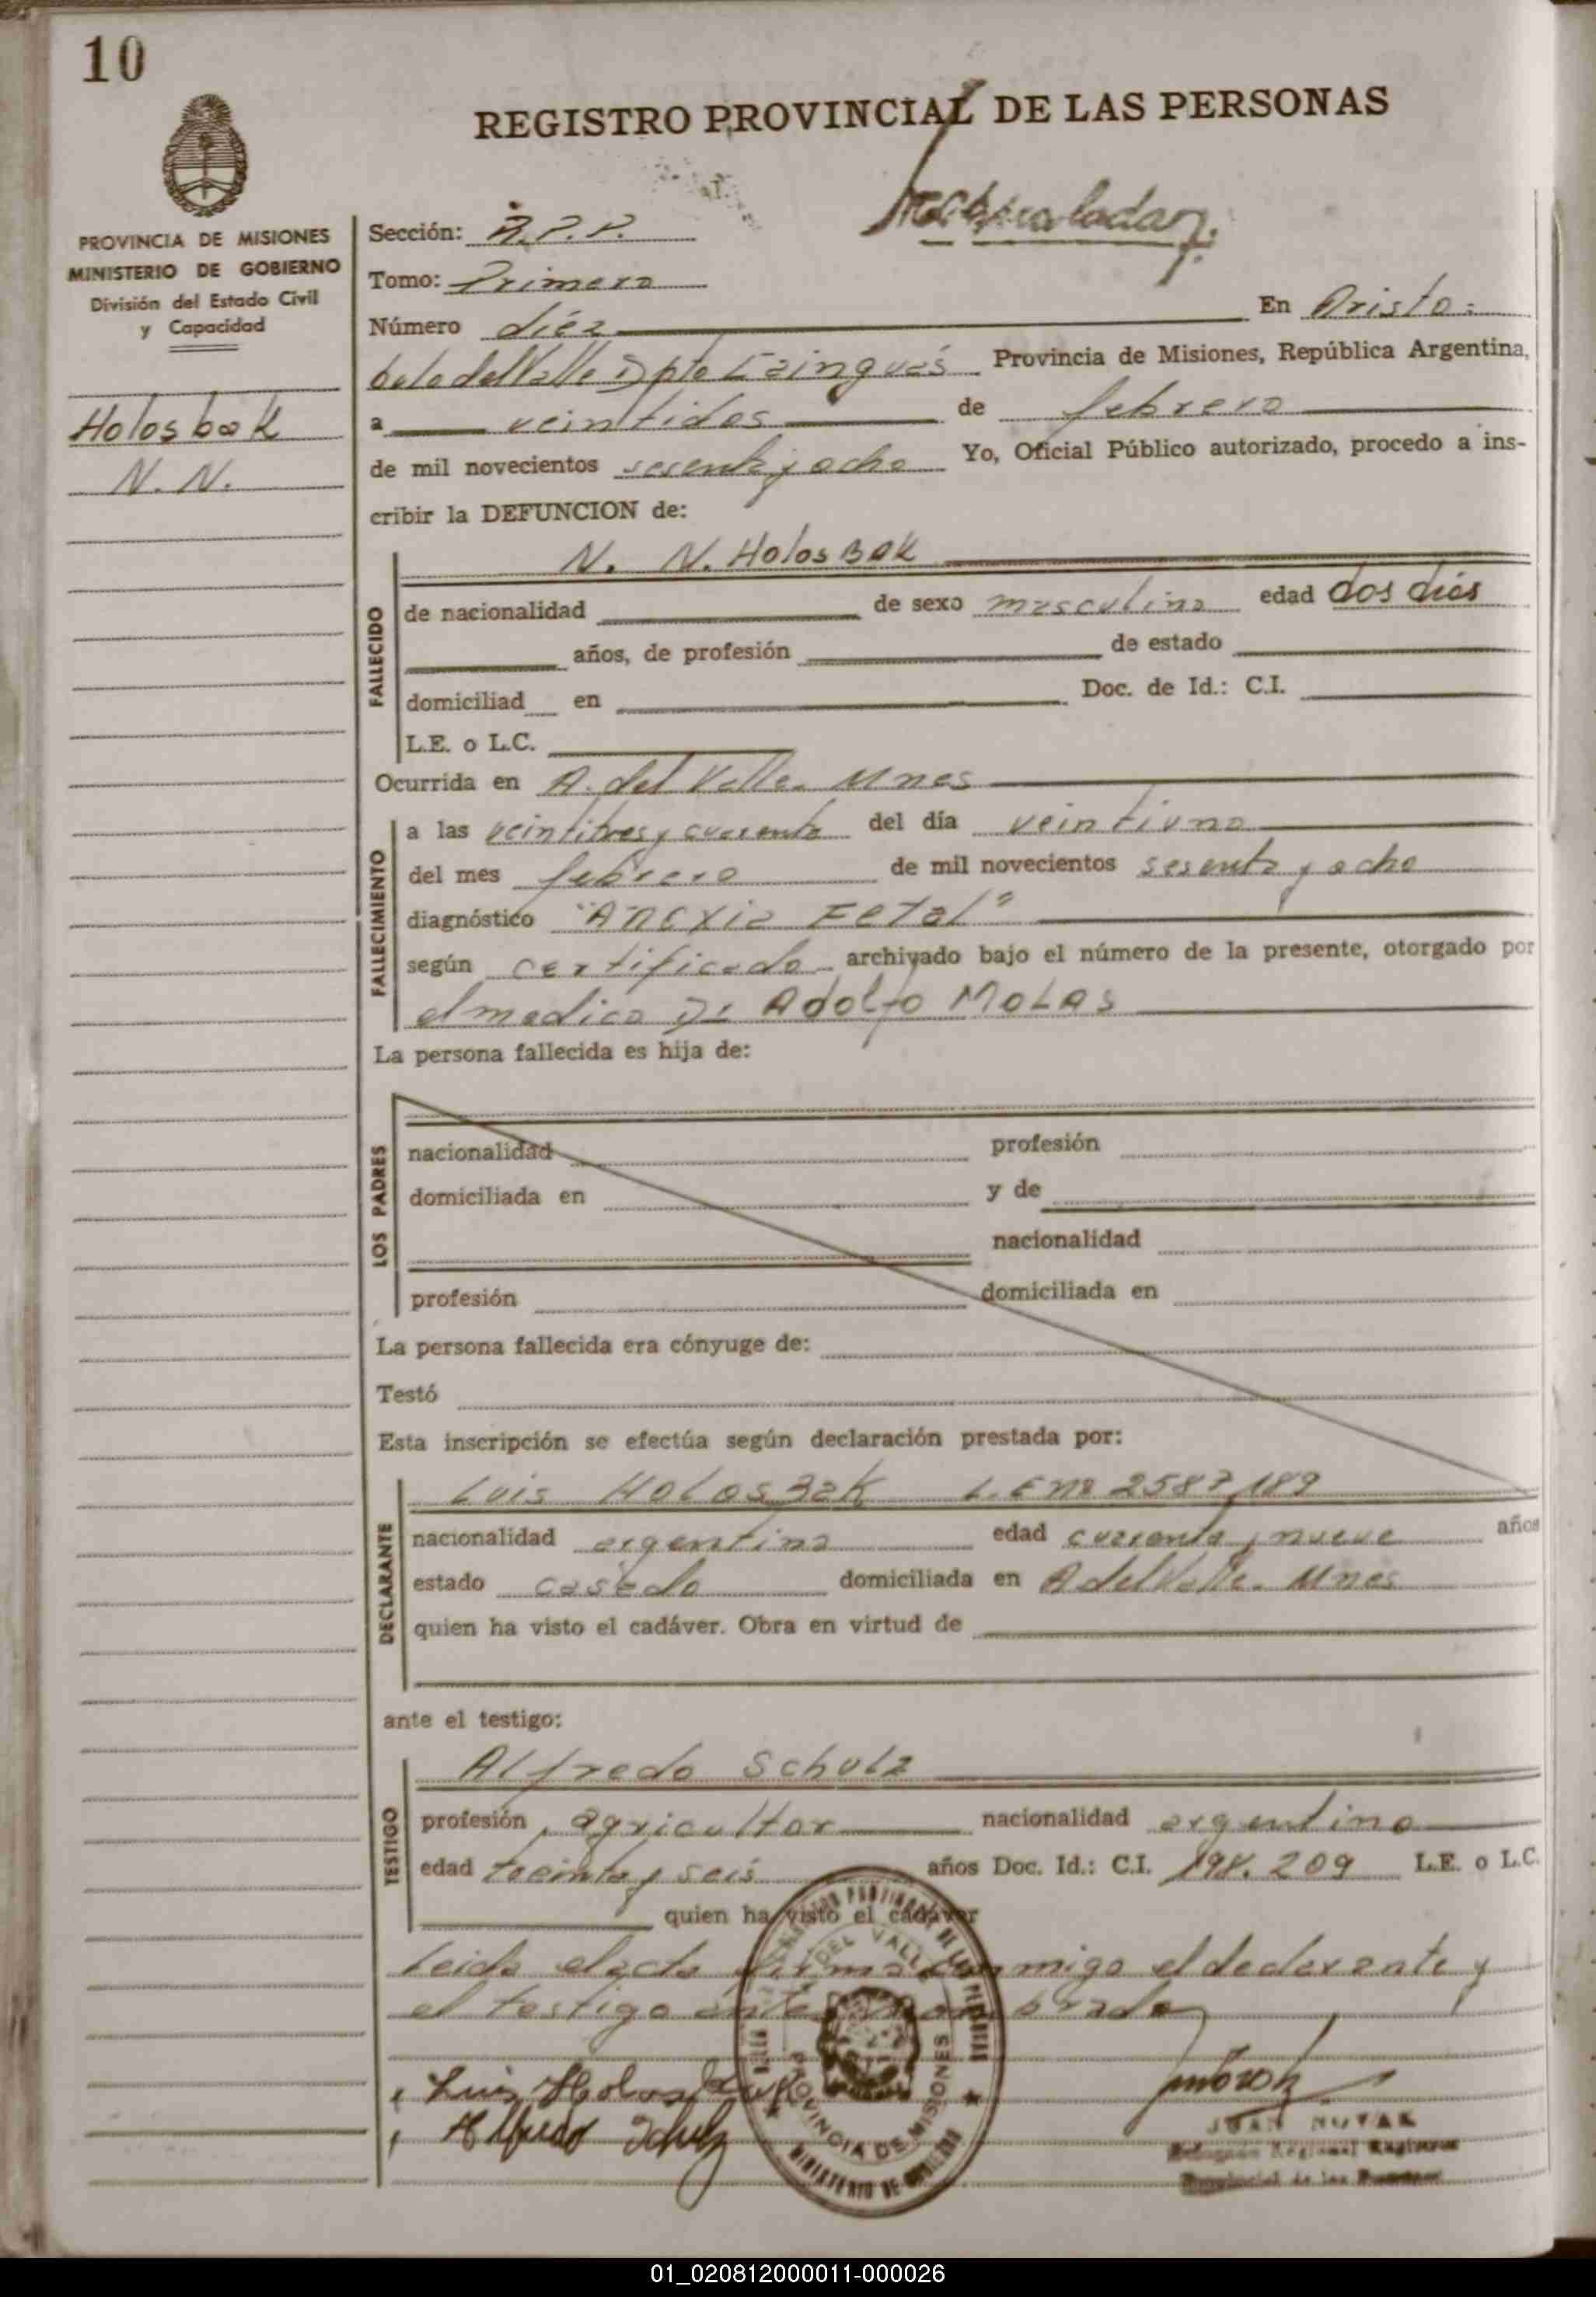 10
REGISTRO PROVINCIAL DE LAS PERSONAS
PROVINCIA DE MISIONES
MINISTERIO DE GOBIERNO
División del Estado Civil
y Capacidad
Holosbak
N. N.
Sección: R.P.P.
Tomo: Primero
Número diéz En Aristo-
bulo del Valle Dpto Cainguás Provincia de Misiones, República Argentina,
a veintidos de febrero
de mil novecientos sesenta y ocho Yo, Oficial Público autorizado, procedo a ins-
cribir la DEFUNCION de:
N. N. Holosbak
FALLECIDO
de nacionalidad de sexo masculino edad dos días
años, de profesión de estado
domiciliad en Doc. de Id.: C.I.
L.E. o L.C.
Ocurrida en A. del Valle. Mnes
FALLECIMIENTO
a las veintitres y cuarenta del día veintiuno
del mes febrero de mil novecientos sesenta y ocho
diagnóstico "Anoxia Fetal"
según certificado archivado bajo el número de la presente, otorgado por
el medico Dr Adolfo Molas
La persona fallecida es hija de:
LOS PADRES
nacionalidad profesión
domiciliada en y de
nacionalidad
profesión domiciliada en
La persona fallecida era cónyuge de:
Testó
Esta inscripción se efectúa según declaración prestada por:
DECLARANTE
Luis Holosbak L.E nº 2587,189
nacionalidad argentina edad cuarenta y nueve años
estado casado domiciliada en A del Valle. Mnes
quien ha visto el cadáver. Obra en virtud de
ante el testigo:
TESTIGO
Alfredo Schulz
profesión agricultor nacionalidad argentino
edad treinta y seis años Doc. Id.: C.I. 198.209 L.E. o L.C.
quien ha visto el cadáver
Leida el acta firma conmigo el declarante y
el testigo antes nombrado
Luis Holosbak
Alfredo Schulz
DEL VALLE
PROVINCIA DE MISIONES
MINISTERIO DE GOBIERNO
JUAN NOVAK
Delegado Regional Registro
Provincial de las Personas
01_020812000011-000026